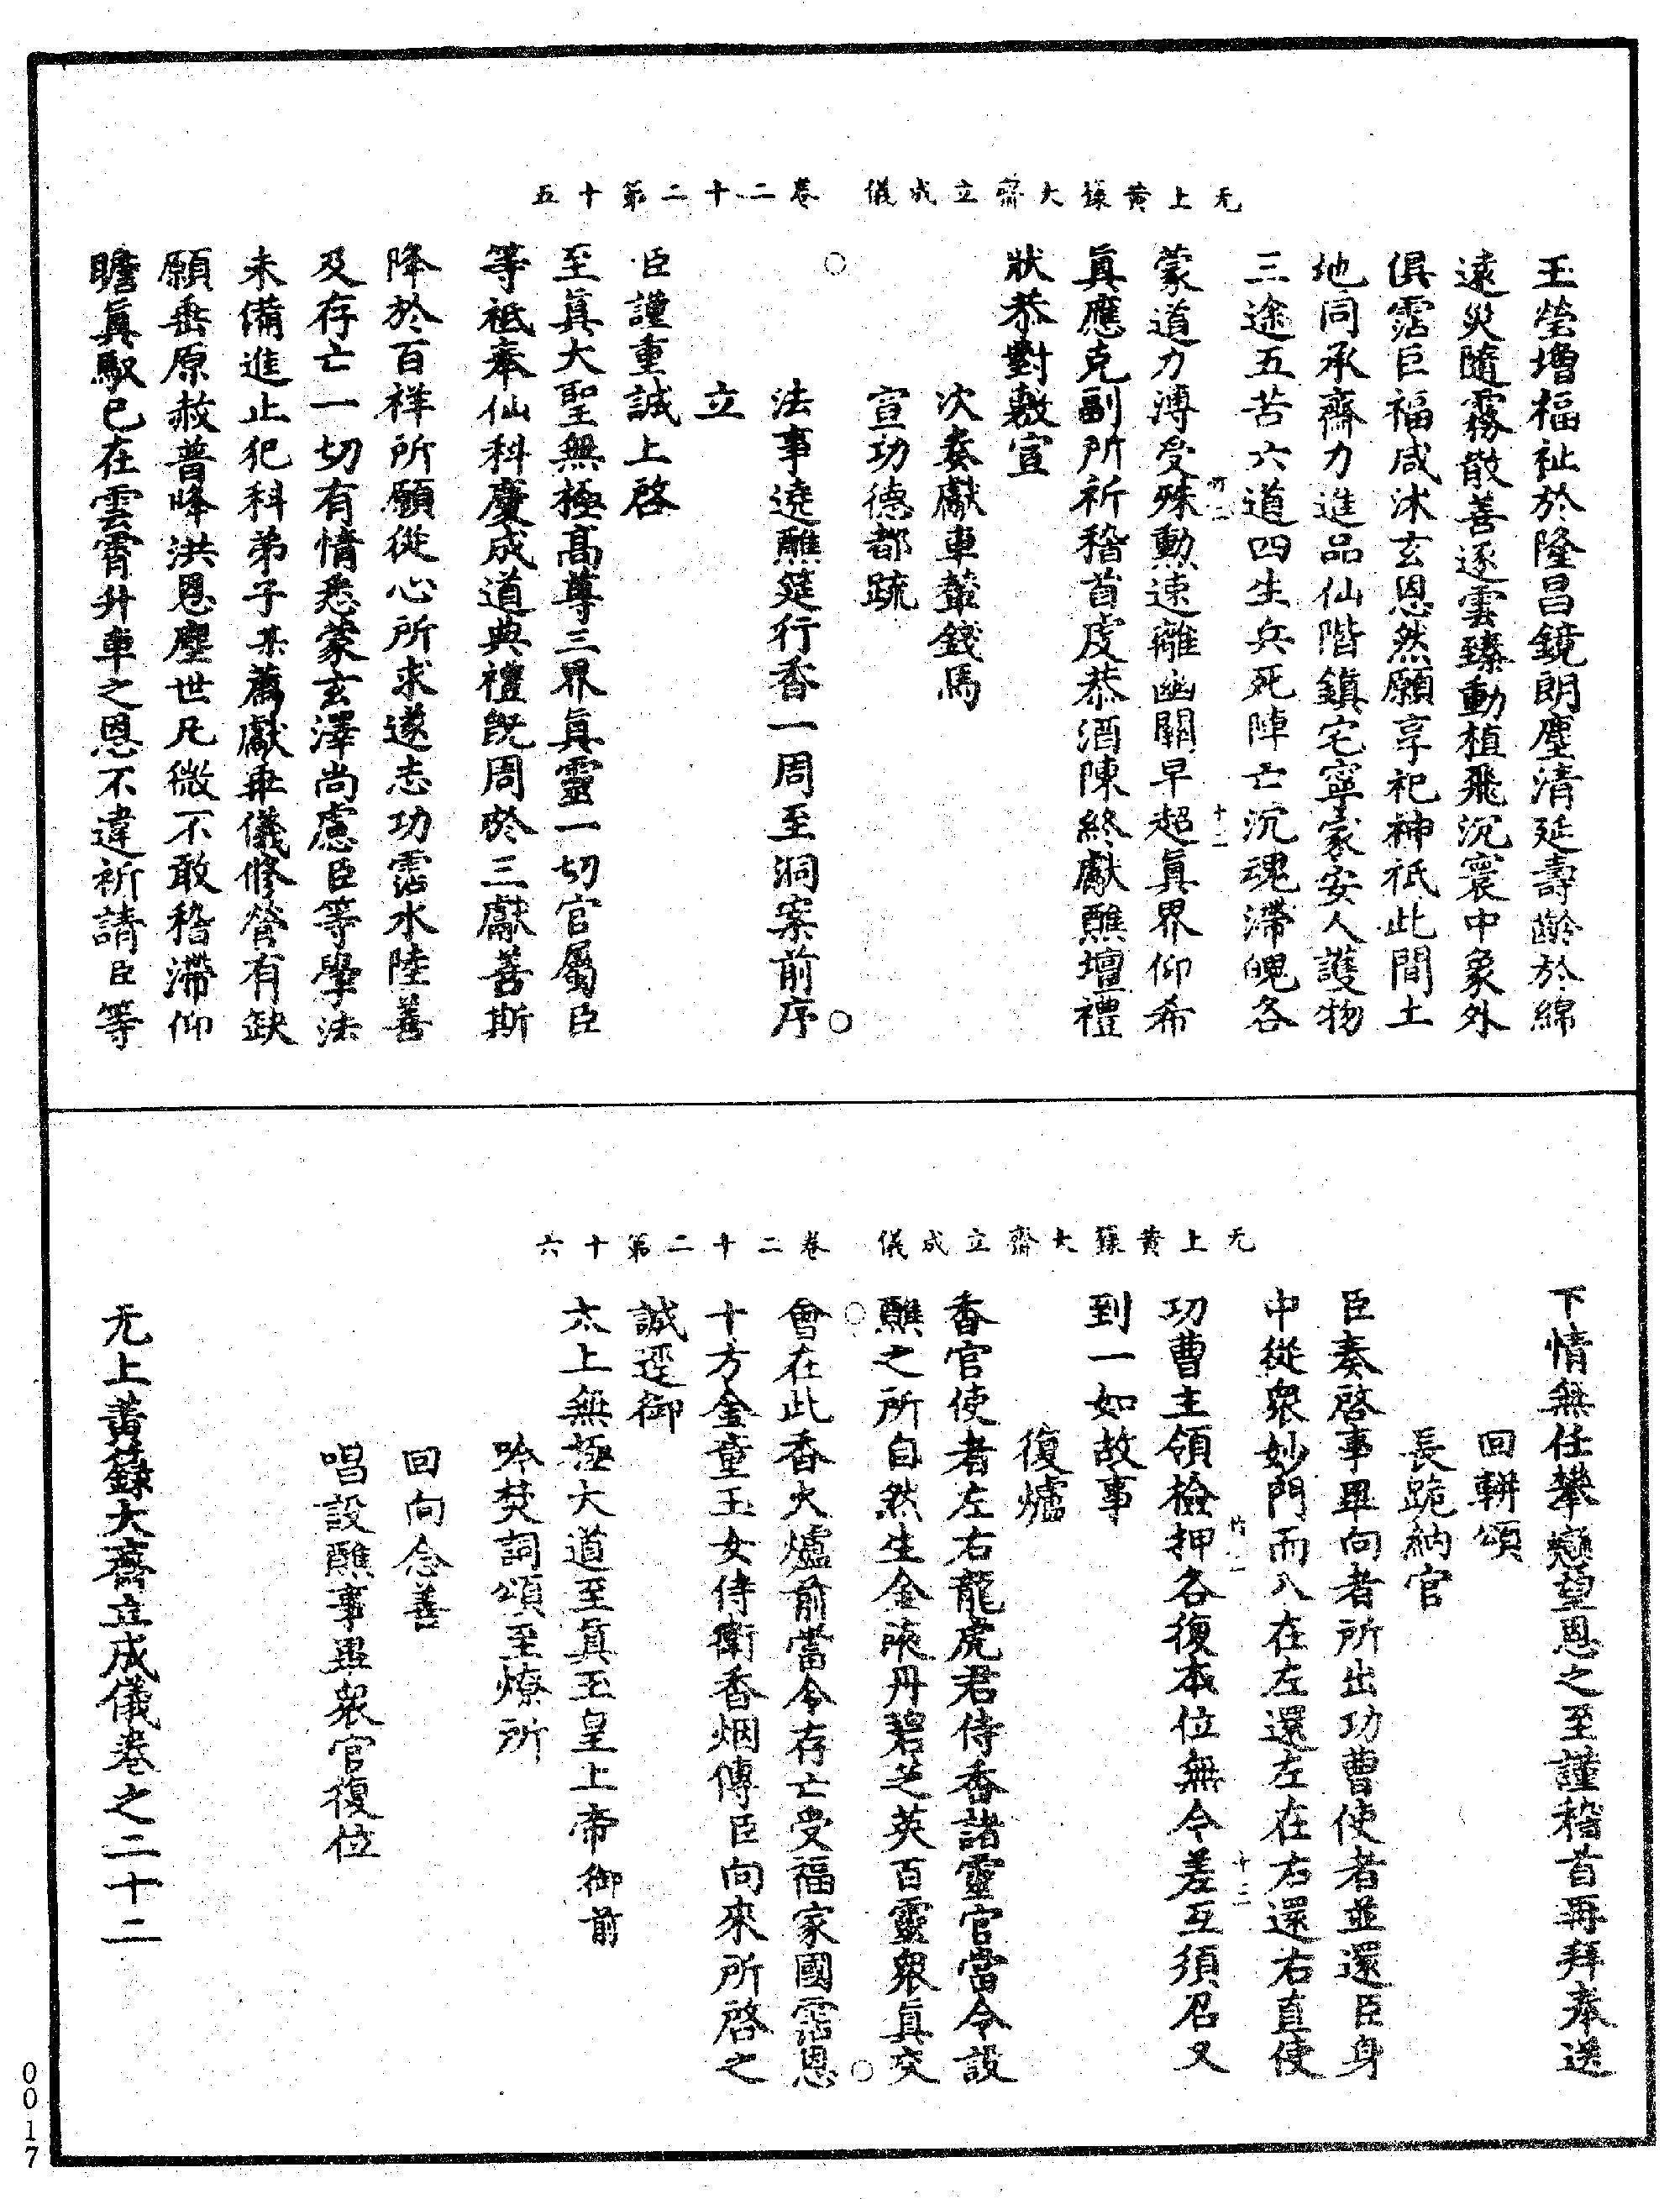 无上黃籙大齋立成儀　卷二十二第十五
玉瑩增福祉於隆昌鏡朗塵清延壽齡於綿
遠災隨霧散善逐雲臻動植飛沉寰中象外
俱霑巨福咸沐玄恩然願享祀神祇此間土
地同承齋力進品仙階鎮宅寧家安人護物
三途五苦六道四生兵死陣亡沉魂滯魄各
竹一　十一
蒙道力溥受殊勳速離幽關早超眞界仰希
眞應克副所祈稽首虔恭酒陳終獻醮壇禮
狀恭對敷宣
次奏獻車輦錢馬
宣功德都疏
○　○
法事遶醮筵行香一周至洞案前序
立
臣謹重誠上啓
至眞大聖無極髙尊三界眞靈一切官屬臣
等祇奉仙科慶成道典禮旣周於三獻善斯
降於百祥所願從心所求遂志功霑水陸善
及存亡一切有情悉蒙玄澤尚慮臣等學法
未備進止犯科弟子某薦獻乖儀修營有缺
願垂原赦普降洪恩塵世凡微不敢稽滯仰
瞻眞馭已在雲霄升車之恩不違祈請臣等
无上黃籙大齋立成儀　卷二十二第十六
下情無任攀戀望恩之至謹稽首再拜奉送
回軿頌
長跪納官
臣奏啓事畢向者所出功曹使者並還臣身
中從衆妙門而入在左還左在右還右直使
竹一　十二
功曹主領檢押各復本位無令差互須召又
到一如故事
復爐
香官使者左右龍虎君侍香諸靈官當令設
醮之所自然生金液丹碧芝英百靈衆眞交
○　○
會在此香火爐前當令存亡受福家國霑恩
十方金童玉女侍衛香烟傳臣向來所啓之
誠逕御
太上無極大道至眞玉皇上帝御前
吟焚詞頌至燎所
回向念善
唱設醮事畢衆官復位
无上黃籙大齋立成儀卷之二十二
0017